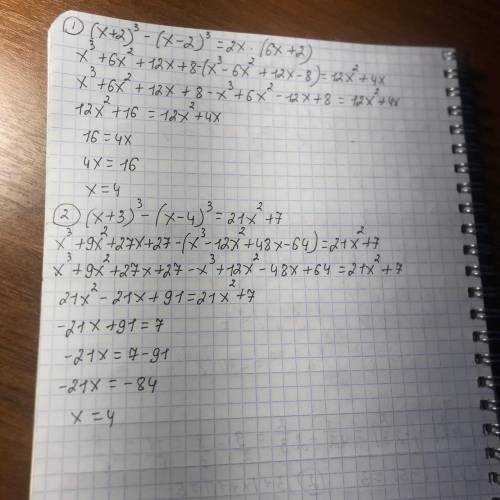 ① (x+2)³ - (x-2)³ = 2x · (6x+2)
x³ + 6x² + 12x + 8 - (x³ - 6x² + 12x - 8) = 12x² + 4x
x³ + 6x² + 12x + 8 - x³ + 6x² - 12x + 8 = 12x² + 4x
12x² + 16 = 12x² + 4x
16 = 4x
4x = 16
x = 4
② (x+3)³ - (x-4)³ = 21x² + 7
x³ + 9x² + 27x + 27 - (x³ - 12x² + 48x - 64) = 21x² + 7
x³ + 9x² + 27x + 27 - x³ + 12x² - 48x + 64 = 21x² + 7
21x² - 21x + 91 = 21x² + 7
-21x + 91 = 7
-21x = 7 - 91
-21x = -84
x = 4